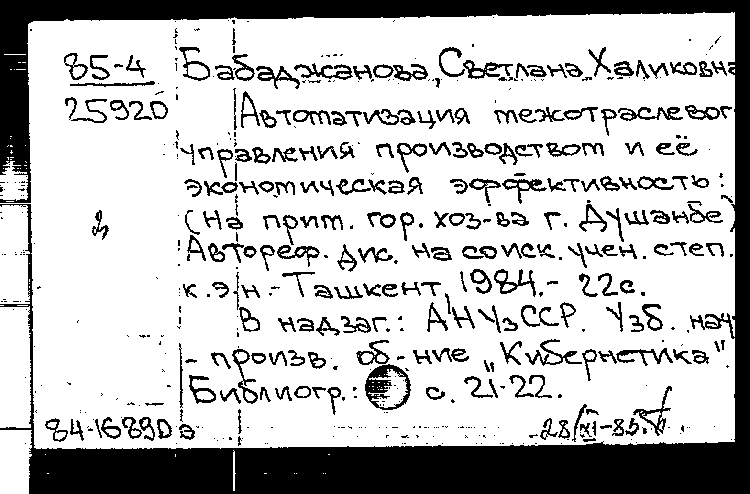 85-4 Бабаджанова, Светлана Халиковна
25920 Автоматизация межотраслевог
управления производством и её
экономическая эффективность:
(На прим. гор. хоз-ва г. Душанбе)
Автореф. дис. на соиск. учен. степ.
к.э.н. - Ташкент, 1984. - 22с.
В надзаг.: АН УзССР. Узб. науч
- произв. об-ние "Кибернетика".
Библиогр.: с. 21-22.
84-16890а 28/XI-85.